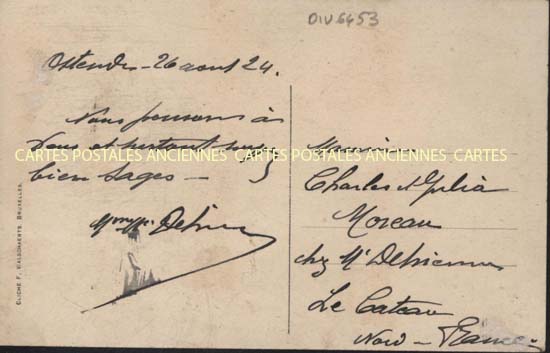 DIV6453
Ostende - 26 aout 24.
Nous pensons à
vous et surtout soyez
bien sages -
CARTES POSTALES ANCIENNES CARTES POSTALES ANCIENNES CARTES
Charles et Julia
Moreau
chez Mr
Le Cateau
Nord - France
CLICHÉ F. WALSCHAERTS. BRUXELLES.